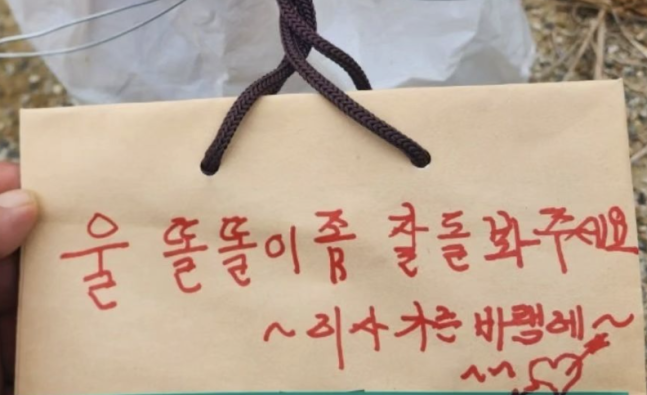 울 똘똘이좀 잘돌봐주세요
~이사가는 바램에~